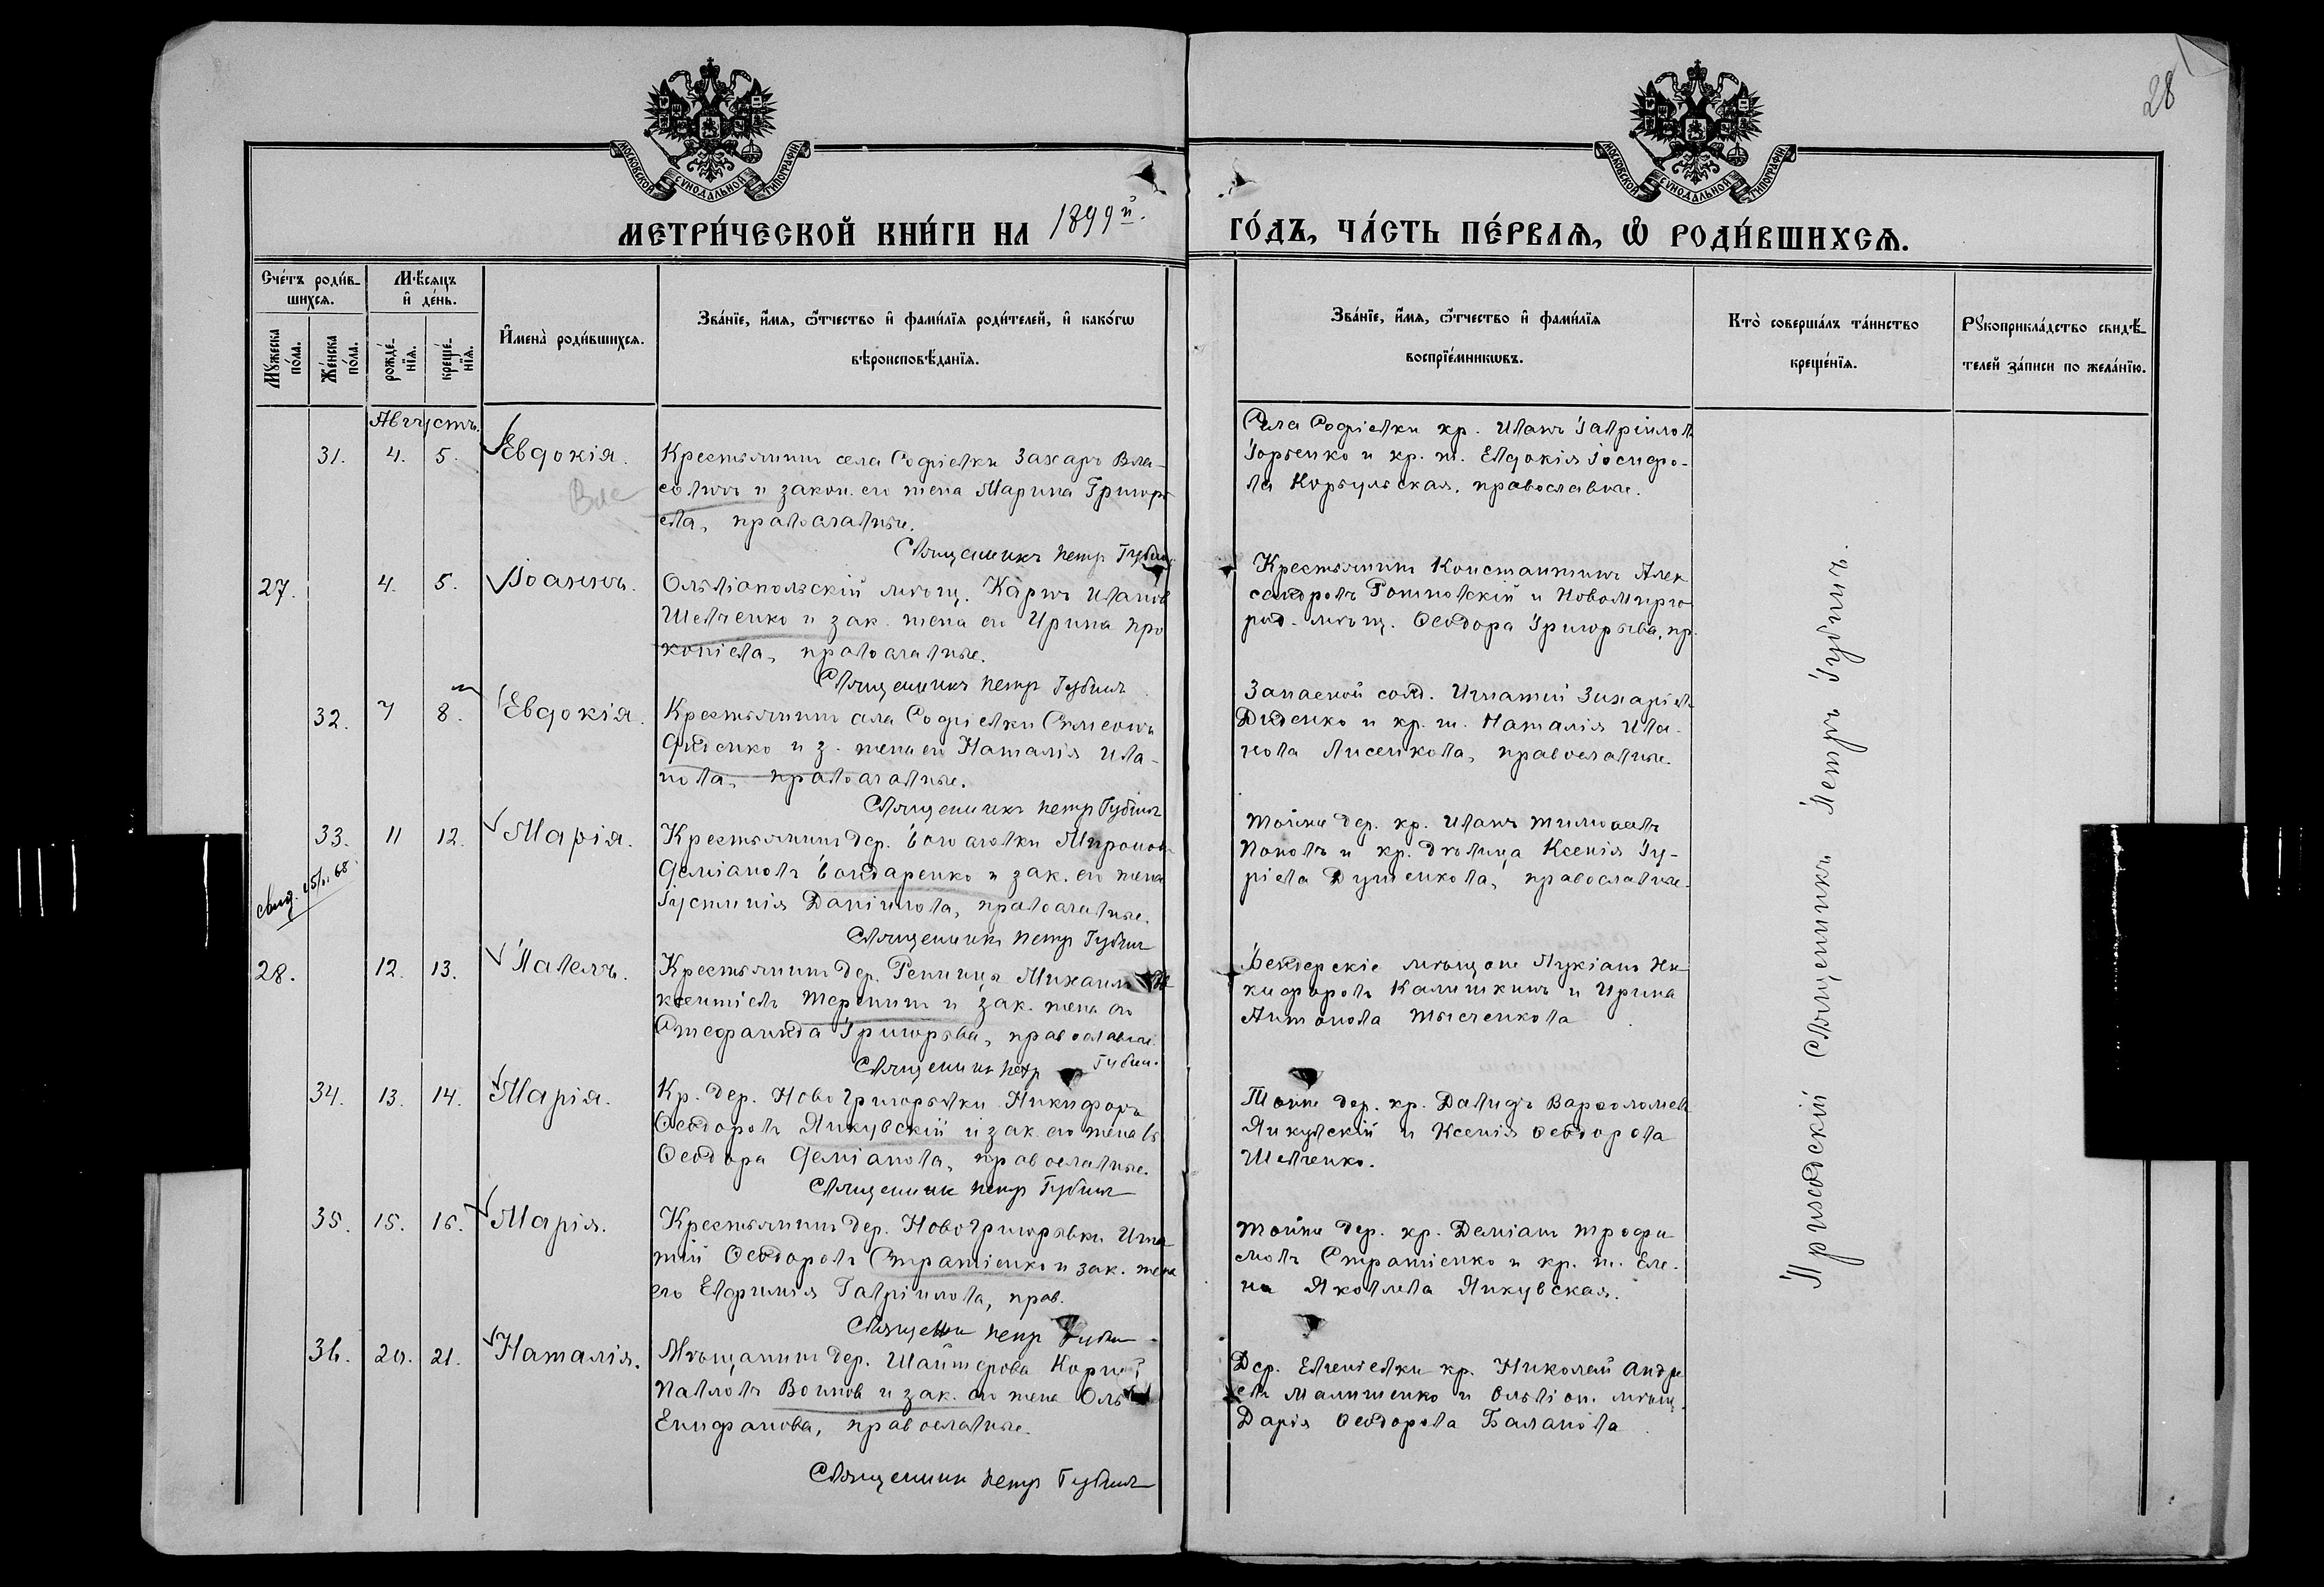 28
МОСКОВСКОЙ СѴНОДАЛЬНОЙ ТИПОГРАФІИ
МОСКОВСКОЙ СѴНОДАЛЬНОЙ ТИПОГРАФІИ
МЕТРИ́ЧЕСКОЙ КНИ́ГИ НА 1899й.
ГО́ДЪ, ЧА́СТЬ ПЕ́РВАѦ, Ѿ РОДИ́ВШИХСѦ.
Сче́тъ роди́в-
шихсѧ.
Мѣ́сѧцъ
и҆ де́нь.
Мꙋ́жеска
по́ла.
Же́нска
по́ла.
рожде́-
нїѧ.
креще́-
нїѧ.
И҆мена̀ роди́вшихсѧ.
Зва́нїе, и҆́мѧ, ѻ҆́тчество и҆ фами́лїѧ роди́телей, и҆ како́гѡ
вѣроисповѣ́данїѧ.
Зва́нїе, и҆́мѧ, ѻ҆́тчество и҆ фами́лїѧ
воспрїе́мникѡвъ.
Кто̀ соверша́лъ та́инство
креще́нїѧ.
Рꙋкоприкла́дство свидѣ́-
телей за́писи по жела́нїю.
Августъ.
31. 4. 5. Евдокія.
Крестьянинъ села Софіевки Захаръ Вла-
совъ и закон. его жена Марина Григорь
ева, православные.
Священникъ Петр Губин
Села Софіевки кр. Иванъ Гавріилов
Горбенко и кр. ж. Евдокія Іосифо-
ва православные.
27. 4. 5. Іоаннъ.
Ольвіопольскій мѣщ. Карпъ Иванов
Шевченко и зак. жена его Ирина Про
копіева, православные.
Священникъ Петр Губинъ
Крестьянинъ Константинъ Алек
сандровъ и Новомирго
род. мѣщ. Ѳеодора Григорьева, пр.
32. 7 8. Евдокія.
Крестьянинъ села Софіевки Симеонъ
Диденко и з. жена его Наталія Ива-
нова, православные.
Священникъ Петр Губинъ
Запасной солд. Игнатій Захаріев
Диденко и кр. ж. Наталія Ива-
нова Лисенкова, православные.
33. 11 12. Марія.
Крестьянинъ дер. Богославки Миронъ
Деміановъ Бондаренко и зак. его жена
Іустинія Даніилова, православные.
Священникъ Петр Губин
Тойже дер. кр. Иванъ Тимоѳеевъ
Поповъ и кр. дѣвица Ксенія Гу-
ріева Душенкова, православные.
28. 12. 13. Павелъ.
Крестьянинъ дер. Михаилъ
и зак. жена его
Стефанида Григорьева, православные.
Священник Петр Губин.
Бендерскіе мѣщане Лукіанъ Ни
кифоровъ Калишкинъ и Ирина
Антонова
34. 13. 14. Марія.
Кр. дер. Новогригорьевки Никифоръ
Ѳеодоровъ Янкувскій и зак. его жена
Ѳеодора Деміанова, православные.
Священник Петр Губинъ
Тойже дер. кр. Давидъ Варѳоломеев
Янкувскій и Ксенія Ѳеодорова
Шевченко.
35. 15. 16. Марія.
Крестьянинъ дер. Новогригорьевки Игна
тій Ѳеодоровъ Стратіенко и зак. жена
его Евфимія Гавріилова, прав.
Священник Петр Губин
Тойже дер. кр. Деміанъ Трофи
мовъ Стратіенко и кр. ж. Еле-
на Яковлева Янкувская.
36. 20. 21. Наталія.
Мѣщанинъ дер. Корній
Павловъ Воиновъ и зак. его жена
Епифанова, православные.
Священник Петр Губинъ
Дер. Евгеніевки кр. Николай Андре
евъ Малишенко и Ольвіоп. мѣщ.
Дарія Ѳеодорова Баланова
Приходскій Священникъ Петръ Губинъ.